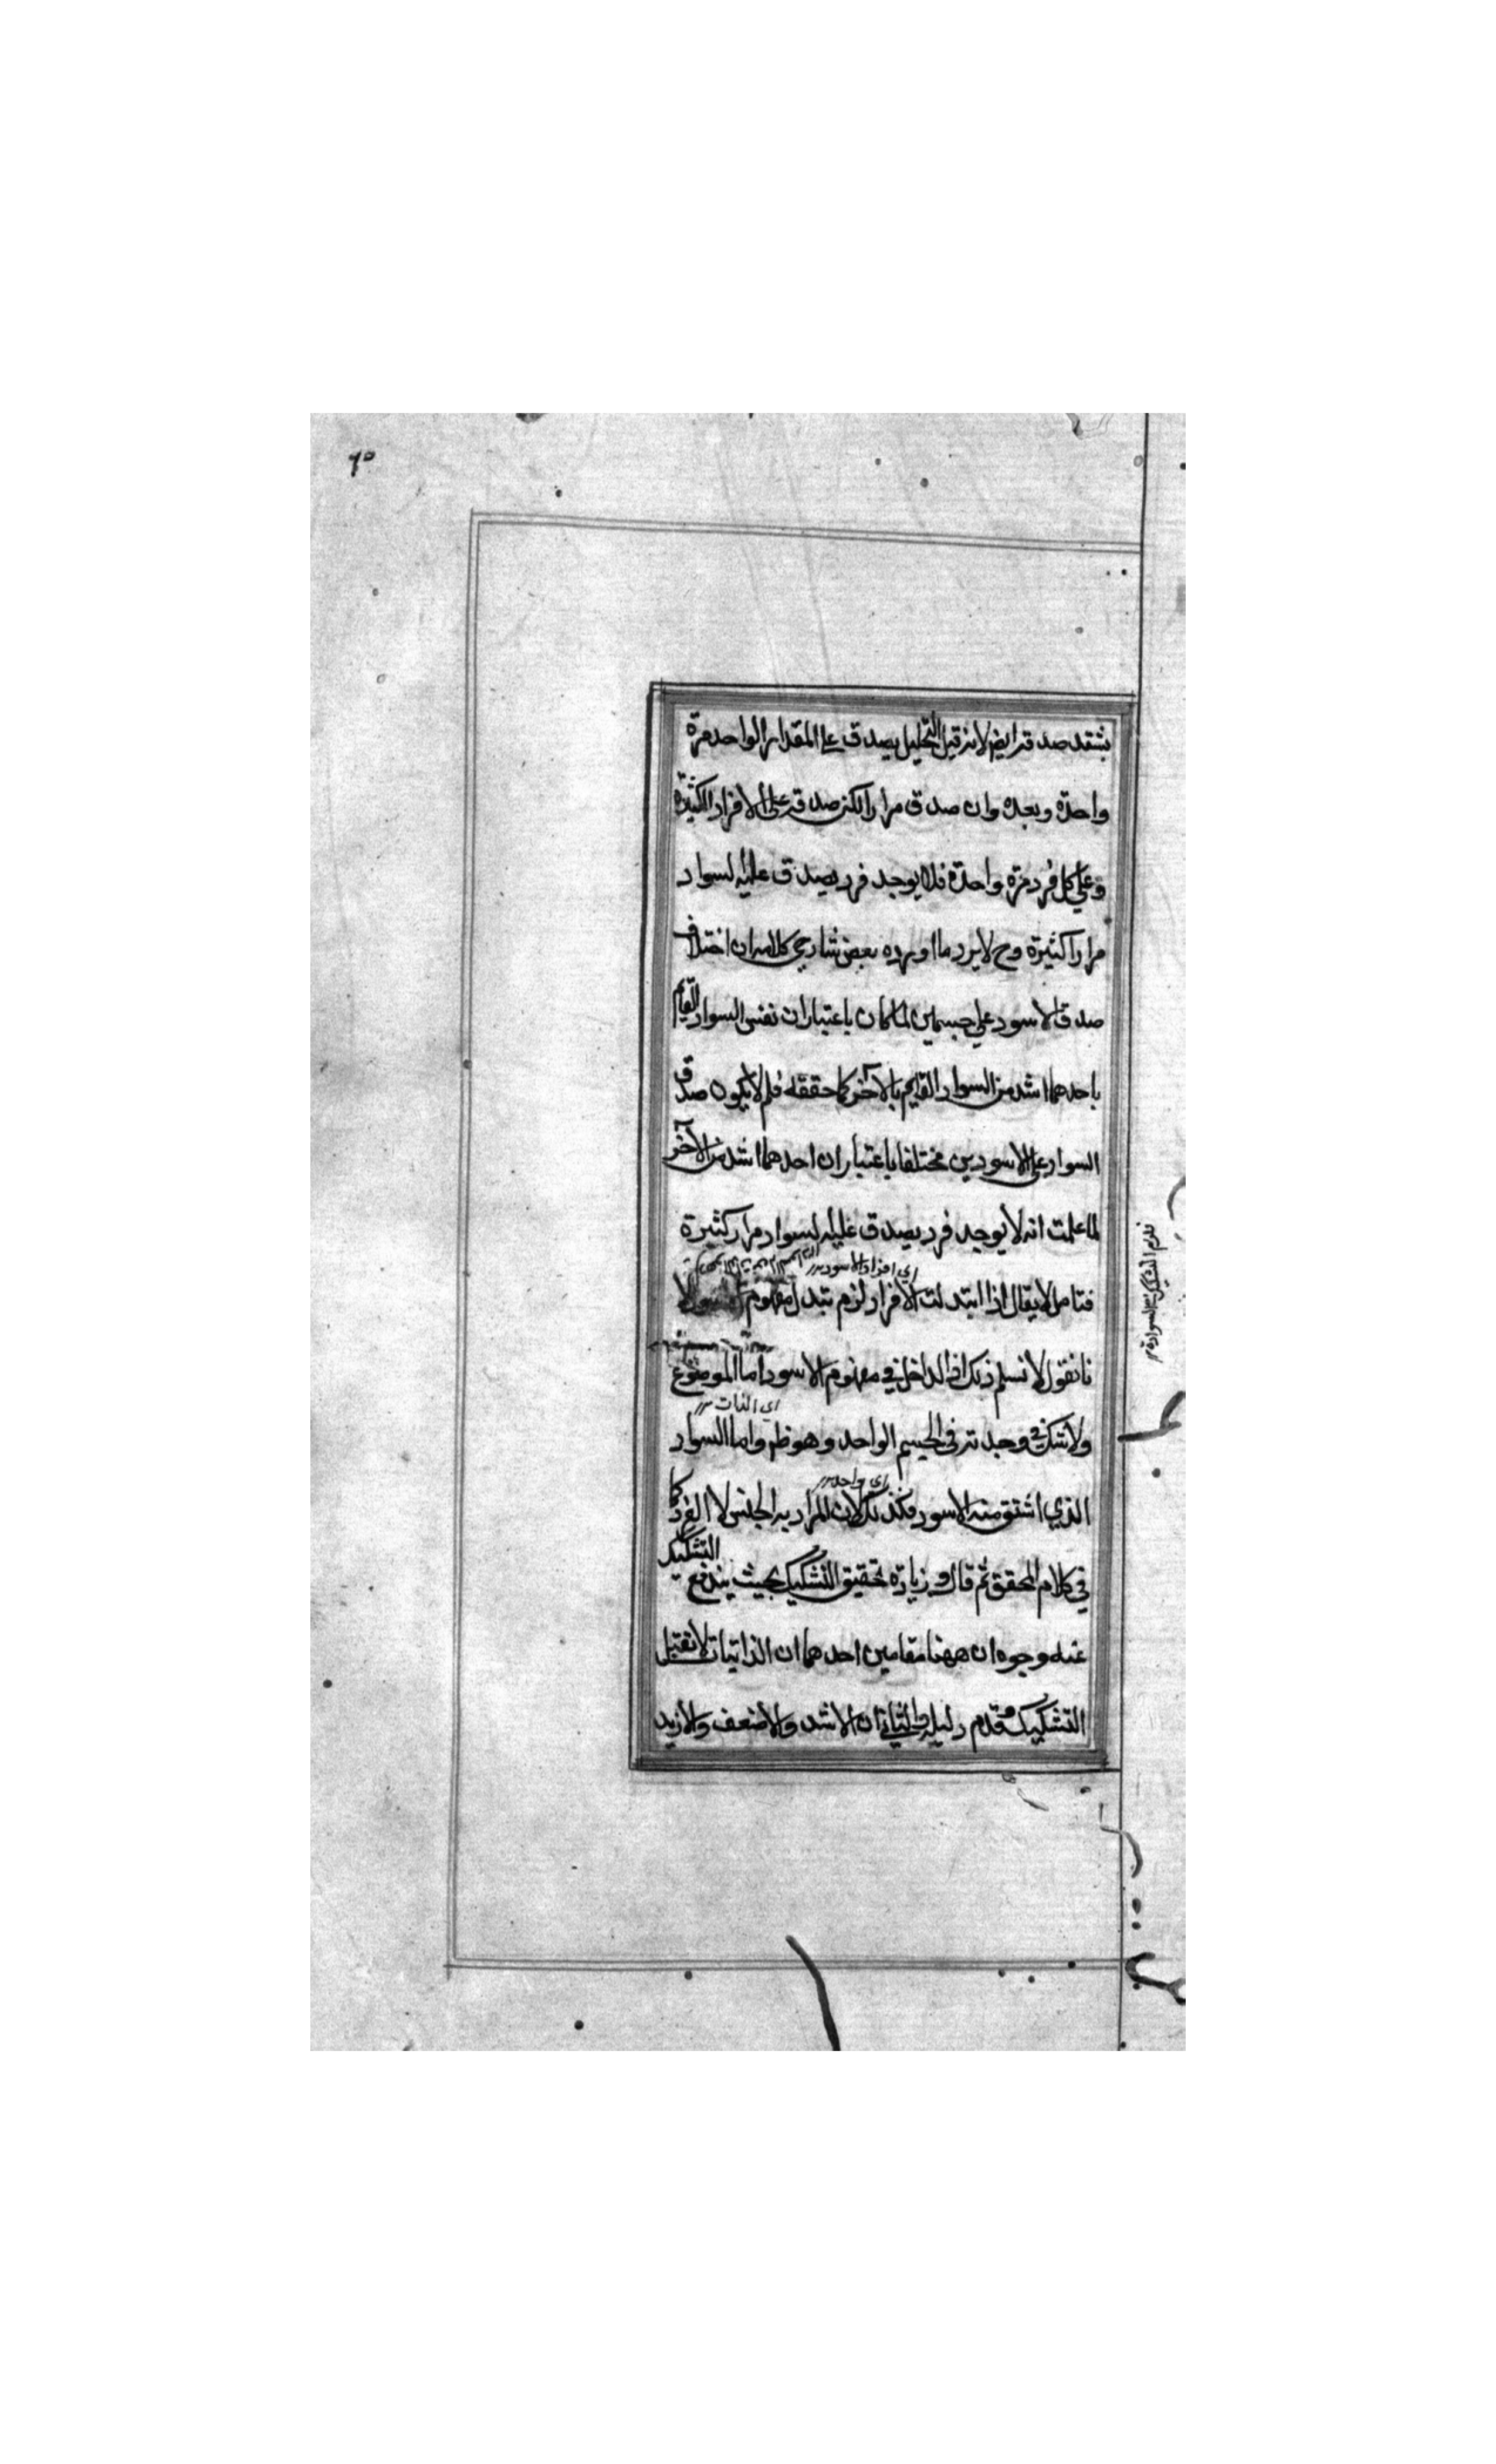 ٦٥
يشتد صدقه ايضا لانه قبل التحليل يصدق على المقدار الواحد مرة
واحدة وبعده وان صدق مرارا لكن صدقه على الافراد الكثيرة
وعلى كل فرد مرة واحدة فلا يوجد فرد يصدق عليه السواد
مرارا كثيرة وح لا يرد ما اورده بعض شارحي كلامه ان اختلاف
صدق الاسود على جسمين لما كان باعتبار ان نفس السواد القايم
باحدهما اشد من السواد القايم بالآخر كما حققه فلم لا يكون صدق
السواد على الاسودين مختلفا باعتبار ان احدهما اشد من الآخر
لما علمت انه لا يوجد فرد يصدق عليه السواد مرار كثيرة
اي افراد الاسود
فتامل لا يقال اذا ابتدلت الافراد لزم تبدل مفهوم
نا نقول لا نسلم ذلك اذ الداخل في مفهوم الاسود اما الموضوع
اي الذات
ولا شك في وحدته في الجسم الواحد وهو ظ واما السواد
اي واحد
الذي اشتق منه الاسود فكذلك لان المراد به الجنس لا الفرد كما
في كلام المحقق ثم قال وزيادة تحقيق التشكيك بحيث يندفع
التشكيك
عنه وجوه ان ههنا مقامين احدهما ان الذاتيات لا تقبل
التشكيك وقدم دليله والثاني ان الاشد والاضعف والازيد
فلزم التشكيك في السواد